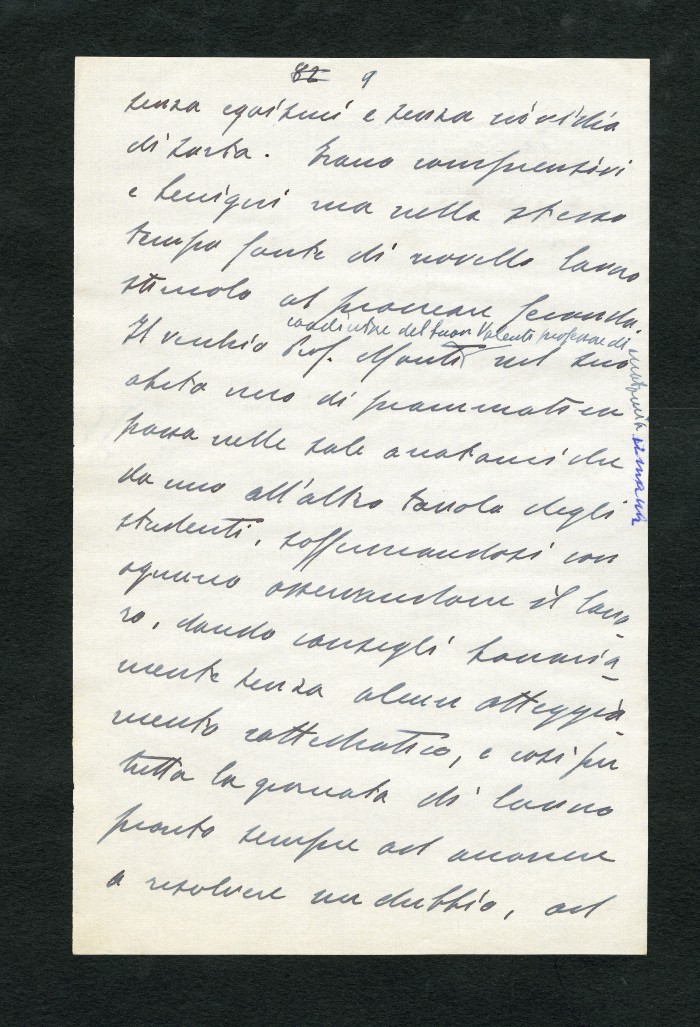 82 9
senza egoismi e senza invidia
di sorta. Erano comprensivi
e benigni ma nello stesso
tempo fonte di novello lavoro
stimolo al procedere fecondo.
coadiutore del buon Valenti professore di
Il vecchio Prof. Monti nel suo
abito nero di grammatica
passa nelle sale anatomiche
da uno all'altro tavolo degli
studenti, soffermandosi con
ognuno osservandone il lavo-
ro, dando consigli bonaria-
mente senza alcun atteggia-
mento cattedratico, e così per
tutta la giornata di lavoro
pronto sempre ad
a risolvere un dubbio, ad
umana